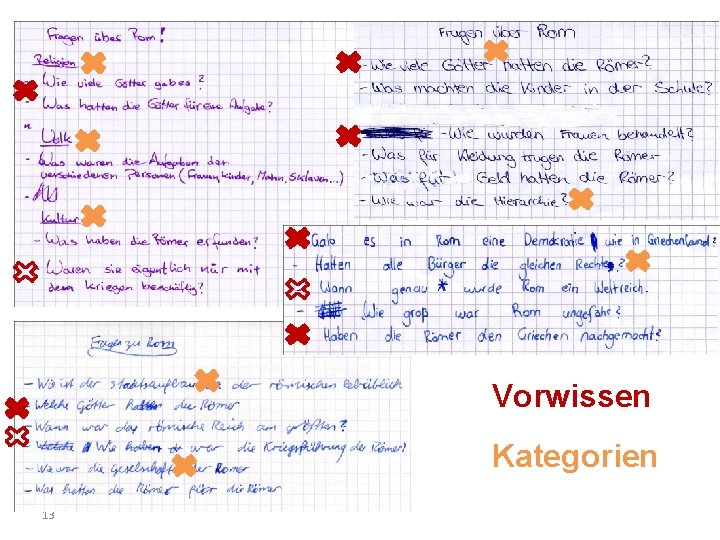 Fragen über Rom!
Religion
- Wie viele Götter gabes?
- Was hatten die Götter für eine Aufgabe?
"
Volk
- Was waren die Aufgaben der
verschiedenen Personen (Frauen, Kinder, Mann, Sklaven...)
Kultur
- Was haben die Römer erfunden?
- Waren sie eigentlich nur mit
dem Kriegen beschäftig?
Fragen über Rom
- Wie viele Götter hatten die Römer?
- Was machten die Kinder in der Schule?
- Wie wurden Frauen behandelt?
- Was für Kleidung trugen die Römer
- Was für Geld hatten die Römer?
- Wie war die Hierarchie?
Gab es in Rom eine Demokratie wie in Griechenland?
- Hatten alle Bürger die gleichen Rechte?
- Wann genau * wurde Rom ein Weltreich.
- Wie groß war Rom ungefähr?
- Haben die Römer den Griechen nachgemacht?
Fragen zu Rom
- Wie ist der der römischen
- Welche Götter hatten die Römer
- Wann war das römische Reich am größten?
- Wie war die Kriegsführung der Römer?
- Wie war die Gesellschaft der Römer
- Was hatten die Römer für die Römer
Vorwissen
Kategorien
13